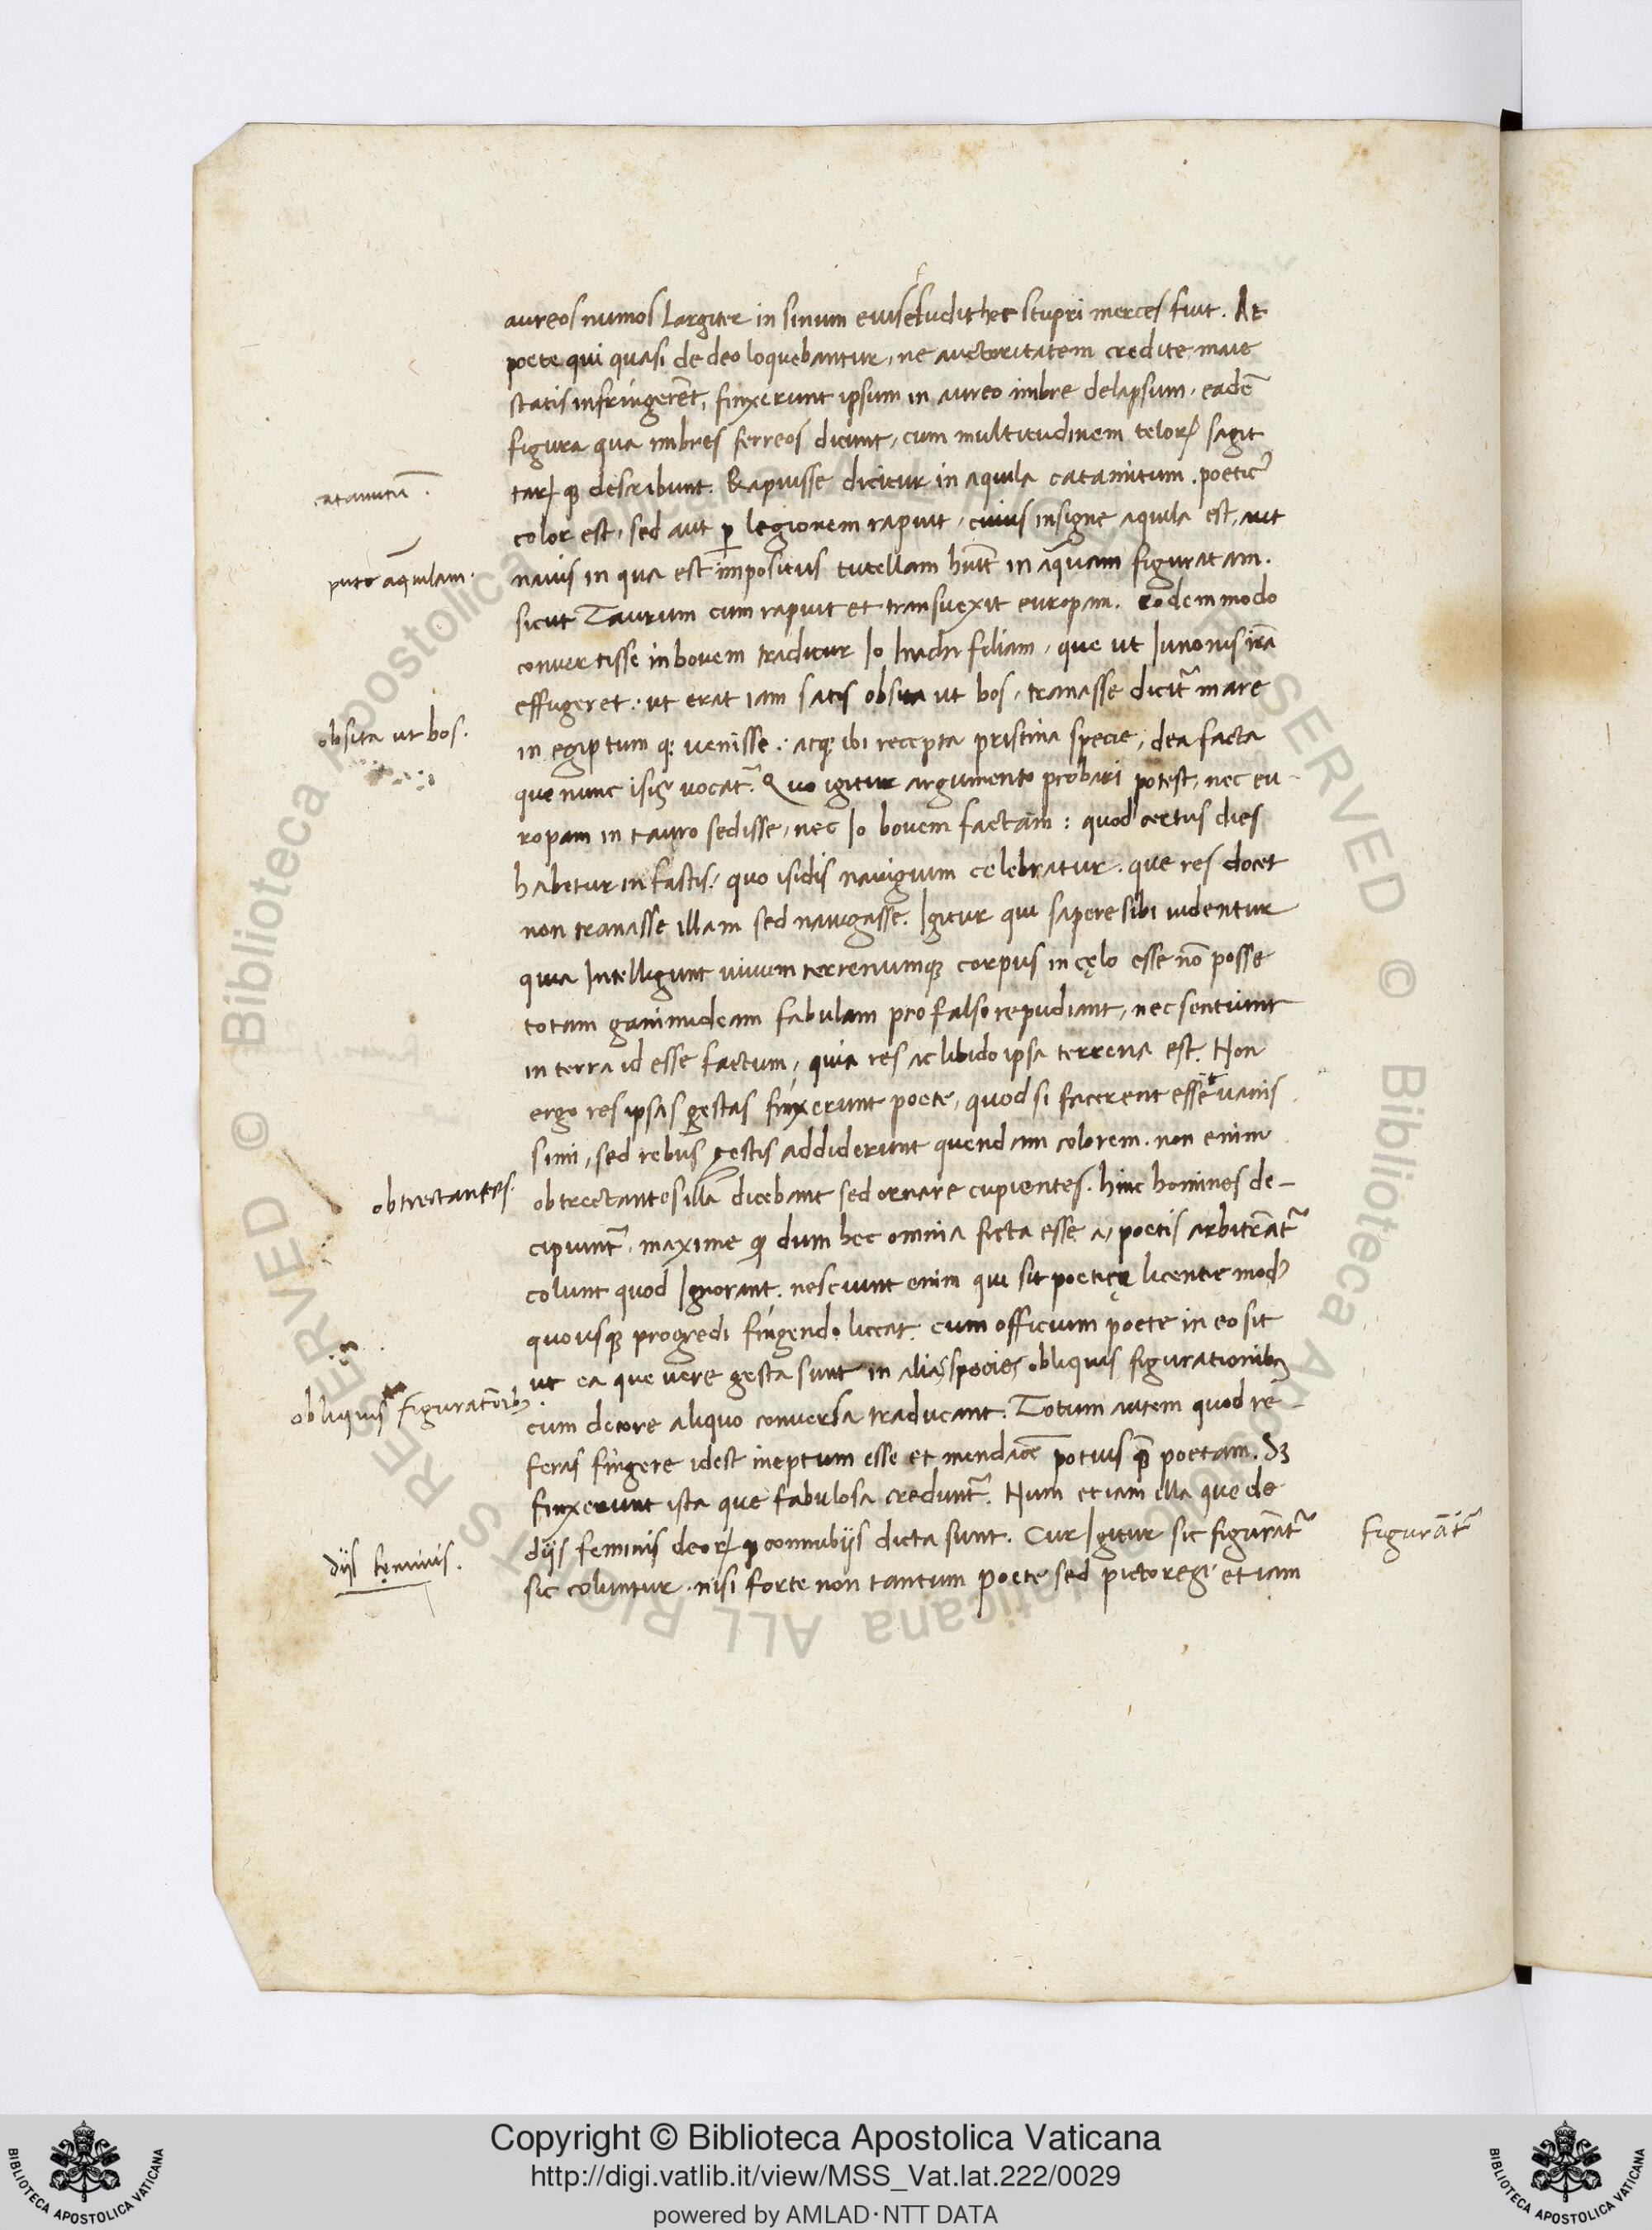 aureos numos largiter in sinum eius effudit hec stupri merces fuit. At
poete qui quasi de deo loquebantur, ne auctoritatem credite maie
statis infringerēt, finxerunt ipsum in aureo imbre delapsum. eadē
figura qua imbres ferreos dicunt, cum multitudinem teloꝝ sagit
catamitū.
taꝝ qꝫ describunt. Rapuisse dicitur in aquila catamitum. poeticꝰ
color est, sed aut ꝑ legionem rapuit, cuius insigne aquila est, aut
puto aquilam.
nauis in qua est impositus tutellam huīt in aquam figuratam.
sicut Taurum cum rapuit et transuexit europam. eodem modo
conuertisse in bouem traditur Io Inachi filiam, que ut Iunonis irā
effugeret. ut erat iam satis obsita ut bos, tranasse dicit᷑ mare
obsita ut bos.
in egiptum qꝫ uenisse. atqꝫ ibi recepta pristina specie, dea facta
que nunc isis uocat᷑. Quo igitur argumento probari potest, nec eu-
ropam in tauro sedisse, nec Io bouem factam: quod certus dies
habetur in fastis, quo isidis nauigium celebratur. que res docet
non tranasse illam sed nauigasse. Igitur qui sapere sibi uidentur
quia Intelligunt uiuum terrenumqꝫ corpus in cęlo esse nō posse
totam ganimideam fabulam pro falso repudiant, nec sentiunt
in terra id esse factum, quia res ac libido ipsa terrena est. Non
ergo res ipsas gestas finxerunt poete, quod si facerent essēt uanis
simi, sed rebus gestis addiderunt quendam colorem. non enim
obtrectantes.
obtrectantes illā dicebant sed ornare cupientes. hinc homines de-
cipiunt᷑. maxime ꝙ dum hec omnia ficta esse a poetis arbitrāt᷑
colunt quod Ignorant. nesciunt enim qui sit poeticę licentie modꝰ
quousqꝫ progredi fingendo liceat. cum officium poete in eo sit
ut ea que uere gesta sunt in alias species obliquis figurationibꝫ
obliquis figuratōibꝫ.
cum decore aliquo conuersa traducant. Totum autem quod re-
feras fingere idest ineptum esse et mendacē potius quā poetam. Sꝫ
finxerunt ista que fabulosa credunt᷑. Num etiam illa que de
diis feminis deoꝝ qꝫ connubiis dicta sunt. Cur Igitur sic figurāt᷑
figurāt᷑
diis feminis.
sic coluntur. nisi forte non tantum poete sed pictores etiam
Copyright © Biblioteca Apostolica Vaticana
http://digi.vatlib.it/view/MSS_Vat.lat.222/0029
powered by AMLAD·NTT DATA
BIBLIOTECA APOSTOLICA VATICANA
BIBLIOTECA APOSTOLICA VATICANA
© Biblioteca Apostolica Vaticana ALL RIGHTS RESERVED © Biblioteca Apostolica Vaticana ALL RIGHTS RESERVED